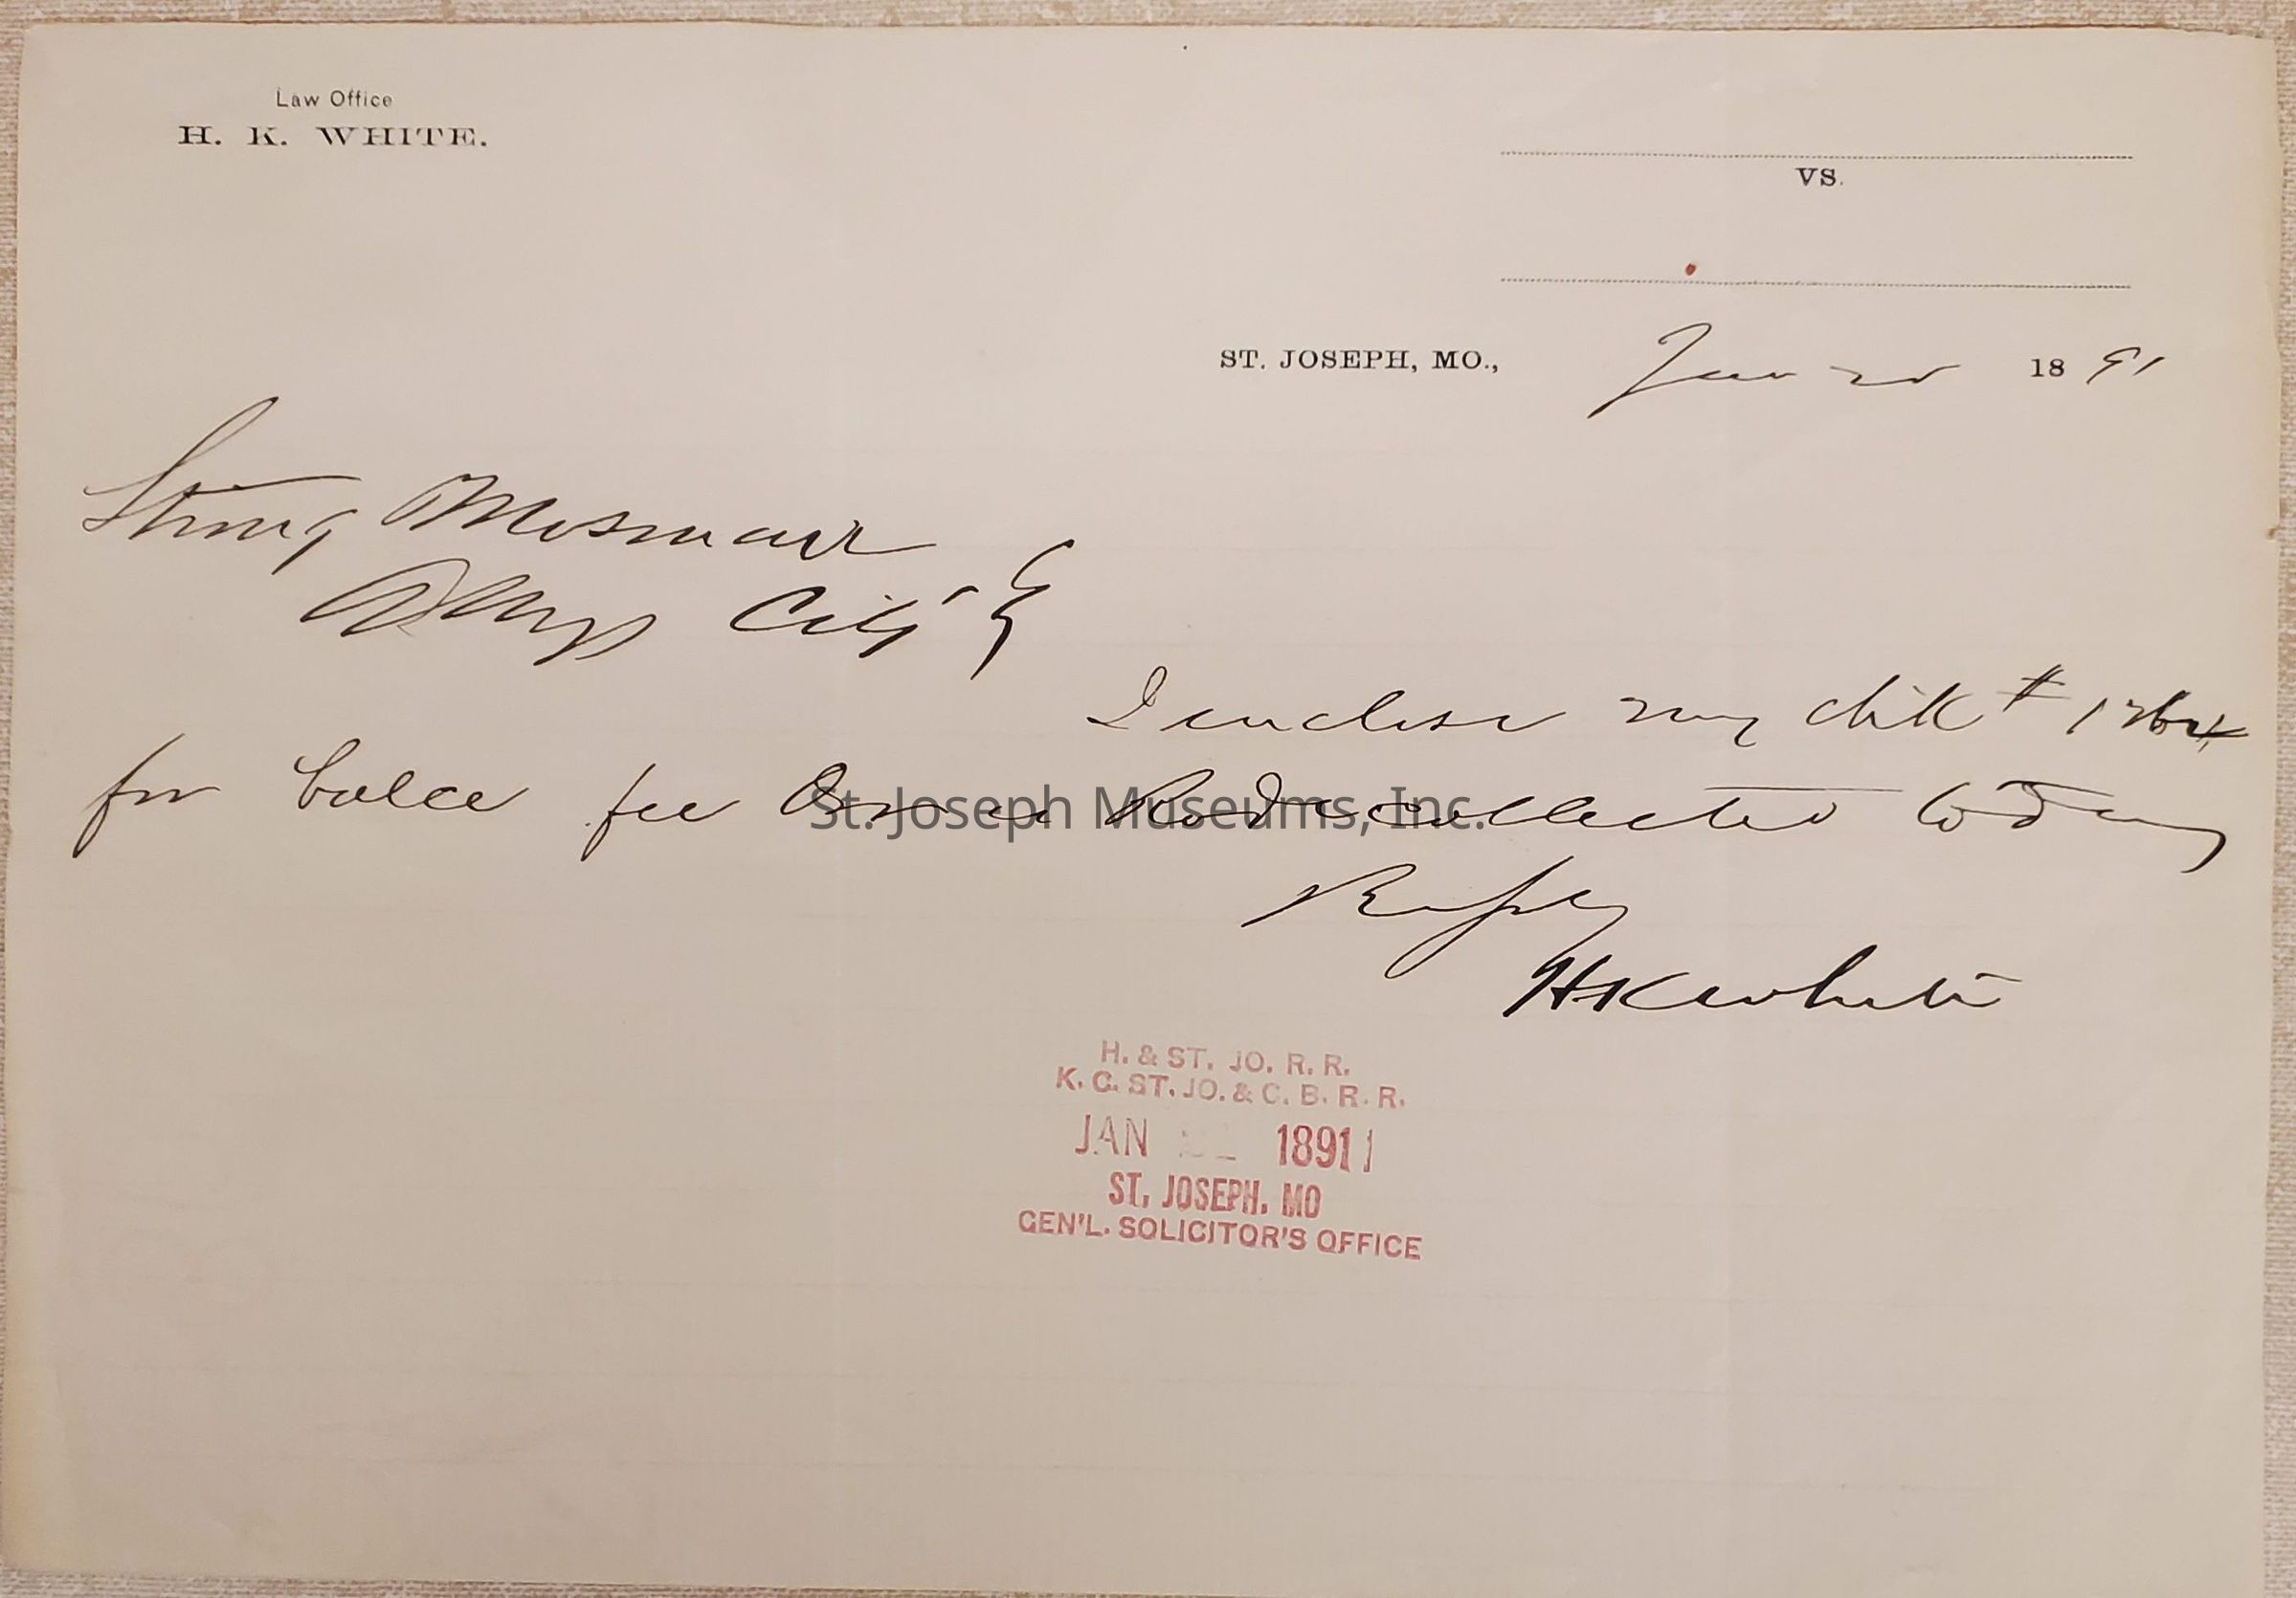 Law Office
H. K. WHITE.
VS.
ST. JOSEPH, MO., Jan 1891
Strong & Mosman
City
I enclose my chk #
for balce fee collected today
Respfy
HKWhite
St. Joseph Museums, Inc.
H. & ST. JO. R. R.
K. C. ST. JO. & C. B. R. R.
JAN 1891
ST. JOSEPH. MO
GEN'L. SOLICITOR'S OFFICE